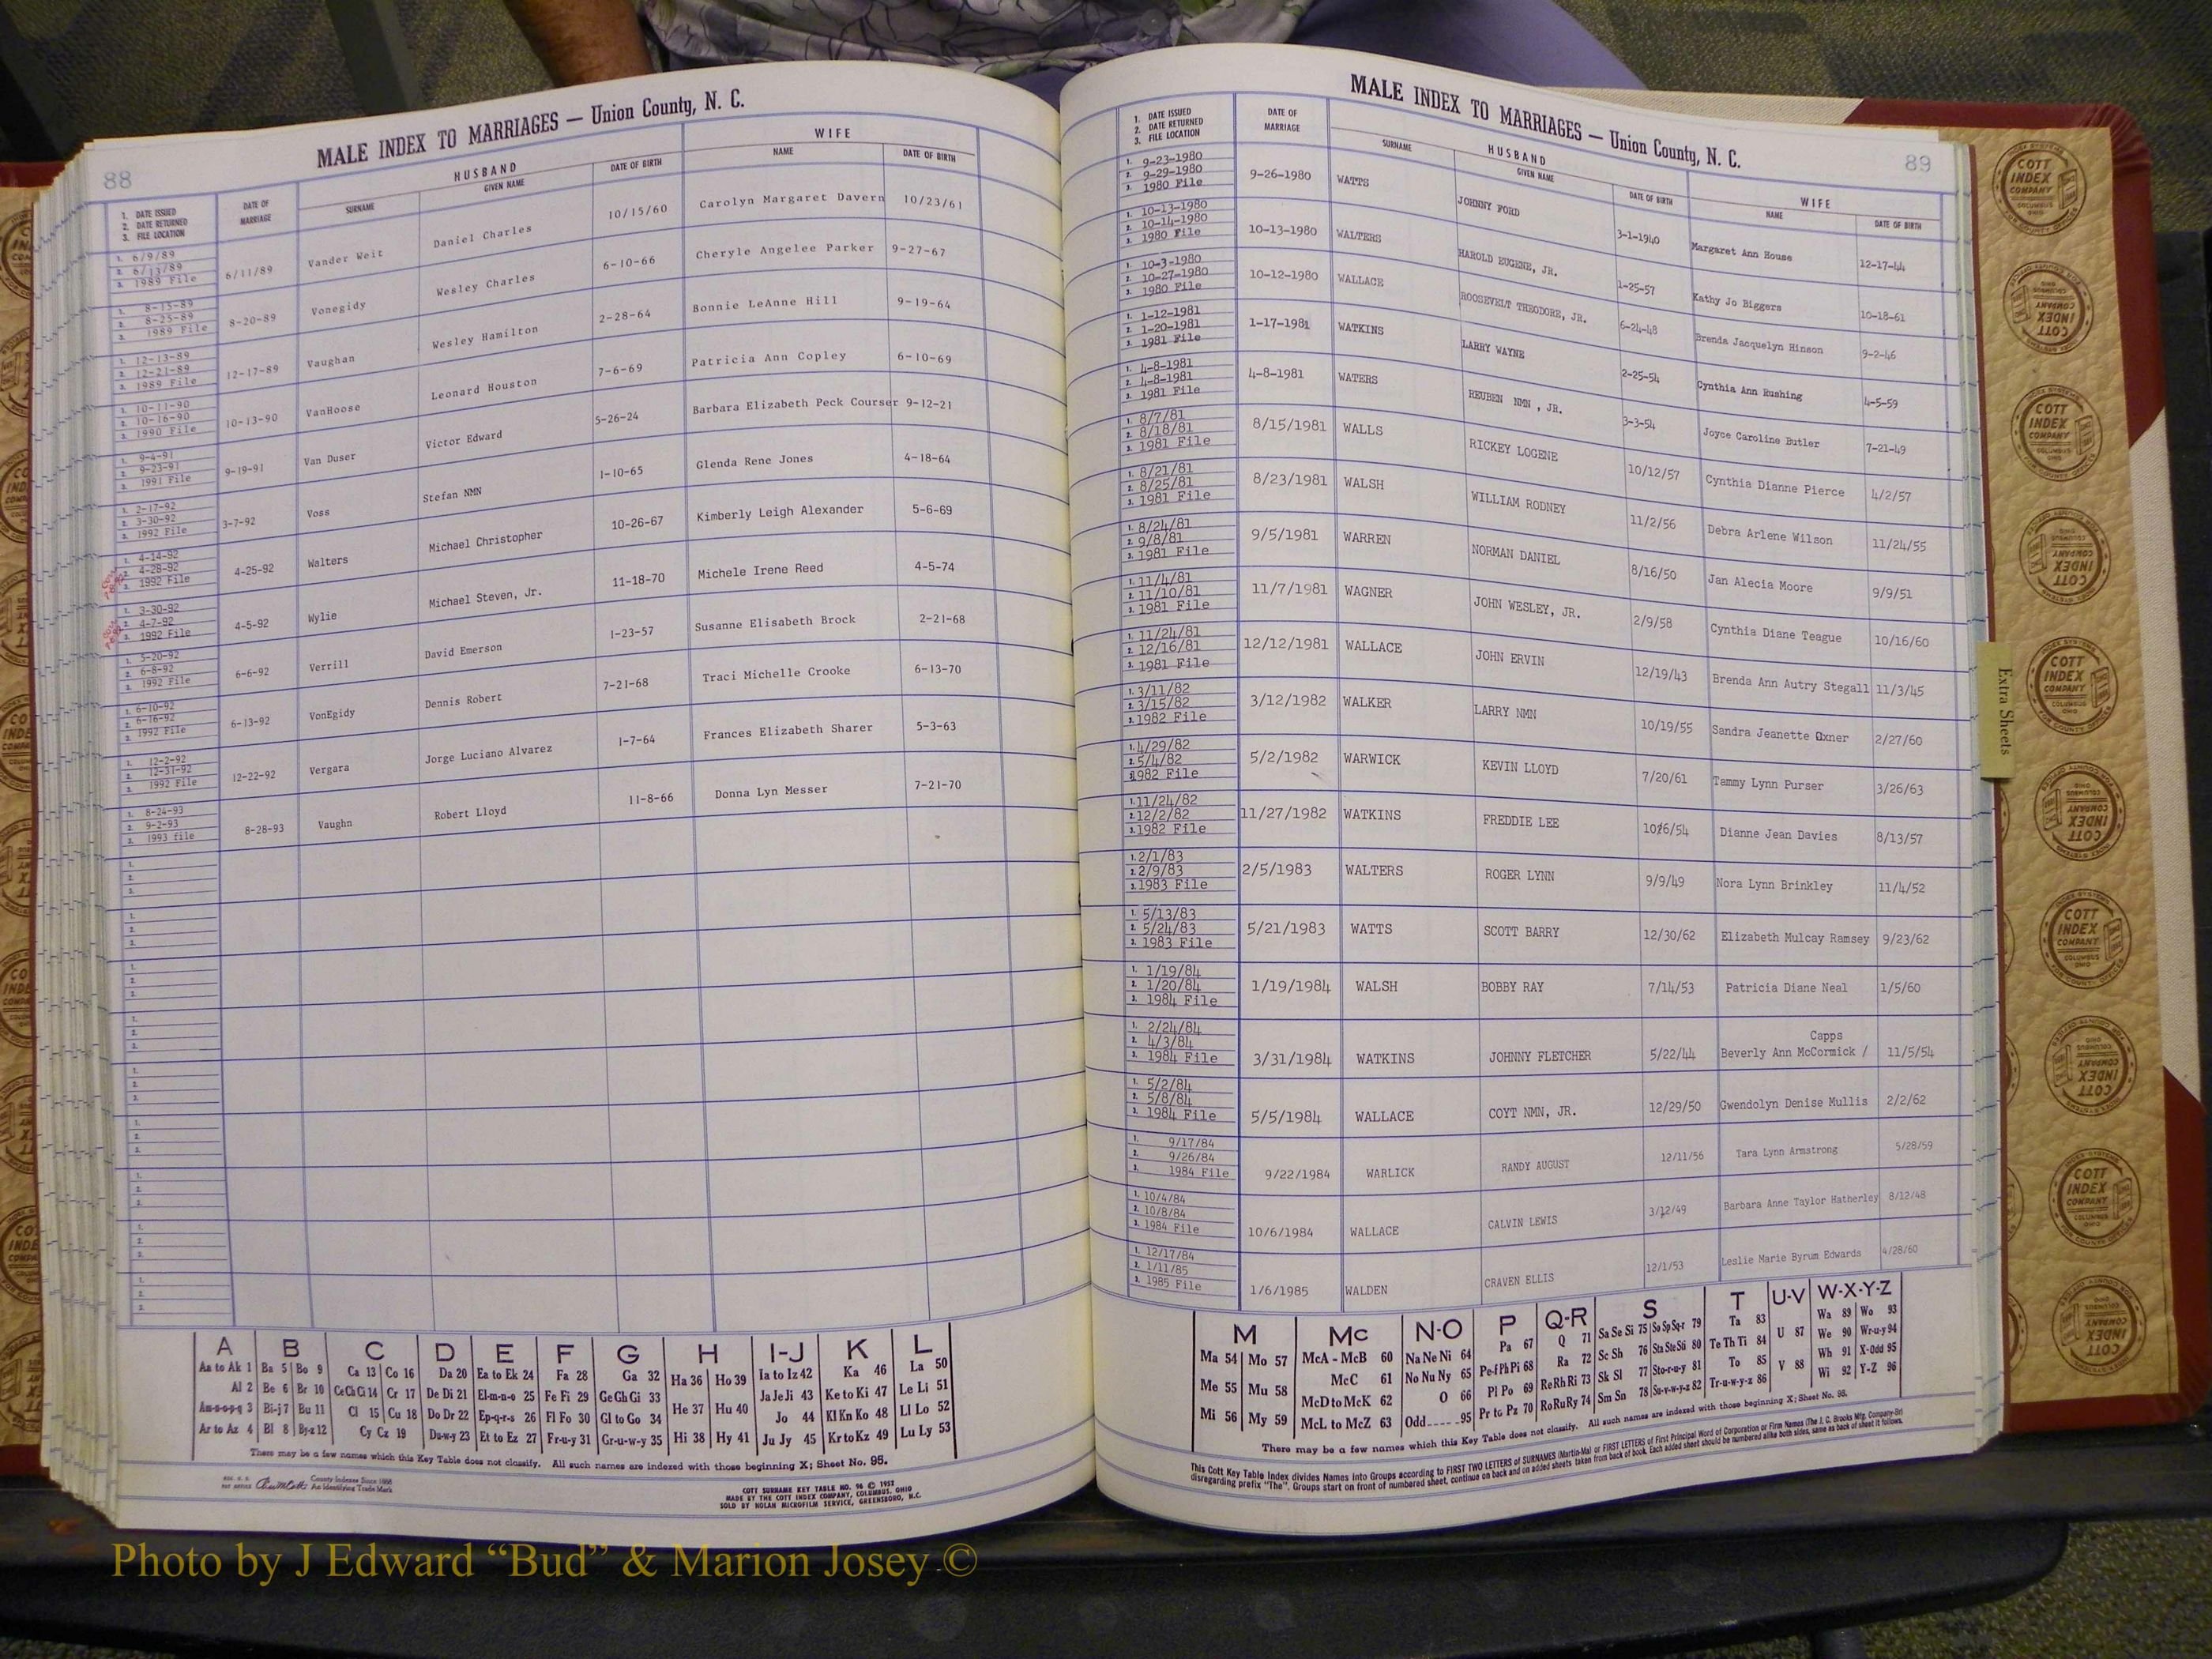 88
MALE INDEX TO MARRIAGES — Union County, N. C.
1. DATE ISSUED
2. DATE RETURNED
3. FILE LOCATION
DATE OF MARRIAGE
HUSBAND
SURNAME
GIVEN NAME
DATE OF BIRTH
WIFE
NAME
DATE OF BIRTH
1. 6/9/89
2. 6/13/89
3. 1989 File
6/11/89 Vander Weit Daniel Charles 10/15/60 Carolyn Margaret Davern 10/23/61
1. 8-15-89
2. 8-25-89
3. 1989 File
8-20-89 Vonegidy Wesley Charles 6-10-66 Cheryle Angelee Parker 9-27-67
1. 12-13-89
2. 12-21-89
3. 1989 File
12-17-89 Vaughan Wesley Hamilton 2-28-64 Bonnie LeAnne Hill 9-19-64
1. 10-11-90
2. 10-16-90
3. 1990 File
10-13-90 VanHoose Leonard Houston 7-6-69 Patricia Ann Copley 6-10-69
1. 9-4-91
2. 9-23-91
3. 1991 File
9-19-91 Van Duser Victor Edward 5-26-24 Barbara Elizabeth Peck Courser 9-12-21
1. 2-17-92
2. 3-30-92
3. 1992 File
3-7-92 Voss Stefan NMN 1-10-65 Glenda Rene Jones 4-18-64
1. 4-14-92
2. 4-28-92
3. 1992 File
4-25-92 Walters Michael Christopher 10-26-67 Kimberly Leigh Alexander 5-6-69
1. 3-30-92
2. 4-7-92
3. 1992 File
4-5-92 Wylie Michael Steven, Jr. 11-18-70 Michele Irene Reed 4-5-74
1. 5-20-92
2. 6-8-92
3. 1992 File
6-6-92 Verrill David Emerson 1-23-57 Susanne Elisabeth Brock 2-21-68
1. 6-10-92
2. 6-16-92
3. 1992 File
6-13-92 VonEgidy Dennis Robert 7-21-68 Traci Michelle Crooke 6-13-70
1. 12-2-92
2. 12-31-92
3. 1992 File
12-22-92 Vergara Jorge Luciano Alvarez 1-7-64 Frances Elizabeth Sharer 5-3-63
1. 8-24-93
2. 9-2-93
3. 1993 file
8-28-93 Vaughn Robert Lloyd 11-8-66 Donna Lyn Messer 7-21-70
A B C D E F G H I-J K L
Aa to Ak 1 Ba 5 Bo 9 Ca 13 Co 16 Da 20 Ea to Ek 24 Fa 28 Ga 32 Ha 36 Ho 39 Ia to Iz 42 Ka 46 La 50
Al 2 Be 6 Br 10 Ce Ch Ci 14 Cr 17 De Di 21 El-m-n-o 25 Fe Fi 29 Ge Gh Gi 33 He 37 Hu 40 Ja Je Ji 43 Ke to Ki 47 Le Li 51
Am-n-o-p-q 3 Bi-j 7 Bu 11 Cl 15 Cu 18 Do Dr 22 Ep-q-r-s 26 Fl Fo 30 Gl to Go 34 Hi 38 Hy 41 Jo 44 Kl Kn Ko 48 Ll Lo 52
Ar to Az 4 Bl 8 By-z 12 Cy Cz 19 Du-w-y 23 Et to Ez 27 Fr-u-y 31 Gr-u-w-y 35 Ju Jy 45 Kr to Kz 49 Lu Ly 53
There may be a few names which this Key Table does not classify. All such names are indexed with those beginning X; Sheet No. 95.
County Indexes Since 1888
An Identifying Trade Mark
COTT SURNAME KEY TABLE NO. 96 © 1952
MADE BY THE COTT INDEX COMPANY, COLUMBUS, OHIO
SOLD BY NOLAN MICROFILM SERVICE, GREENSBORO, N.C.
MALE INDEX TO MARRIAGES — Union County, N. C.
89
1. DATE ISSUED
2. DATE RETURNED
3. FILE LOCATION
DATE OF MARRIAGE
HUSBAND
SURNAME
GIVEN NAME
DATE OF BIRTH
WIFE
NAME
DATE OF BIRTH
1. 9-23-1980
2. 9-29-1980
3. 1980 File
9-26-1980 WATTS JOHNNY FORD 3-1-1940 Margaret Ann House 12-17-44
1. 10-13-1980
2. 10-14-1980
3. 1980 File
10-13-1980 WALTERS HAROLD EUGENE, JR. 1-25-57 Kathy Jo Biggers 10-18-61
1. 10-3-1980
2. 10-27-1980
3. 1980 File
10-12-1980 WALLACE ROOSEVELT THEODORE, JR. 6-24-48 Brenda Jacquelyn Hinson 9-2-46
1. 1-12-1981
2. 1-20-1981
3. 1981 File
1-17-1981 WATKINS LARRY WAYNE 2-25-54 Cynthia Ann Rushing 4-5-59
1. 4-8-1981
2. 4-8-1981
3. 1981 File
4-8-1981 WATERS REUBEN NMN , JR. 3-3-54 Joyce Caroline Butler 7-21-49
1. 8/7/81
2. 8/18/81
3. 1981 File
8/15/1981 WALLS RICKEY LOGENE 10/12/57 Cynthia Dianne Pierce 4/2/57
1. 8/21/81
2. 8/25/81
3. 1981 File
8/23/1981 WALSH WILLIAM RODNEY 11/2/56 Debra Arlene Wilson 11/24/55
1. 8/24/81
2. 9/8/81
3. 1981 File
9/5/1981 WARREN NORMAN DANIEL 8/16/50 Jan Alecia Moore 9/9/51
1. 11/4/81
2. 11/10/81
3. 1981 File
11/7/1981 WAGNER JOHN WESLEY, JR. 2/9/58 Cynthia Diane Teague 10/16/60
1. 11/24/81
2. 12/16/81
3. 1981 File
12/12/1981 WALLACE JOHN ERVIN 12/19/43 Brenda Ann Autry Stegall 11/3/45
1. 3/11/82
2. 3/15/82
3. 1982 File
3/12/1982 WALKER LARRY NMN 10/19/55 Sandra Jeanette Oxner 2/27/60
1. 4/29/82
2. 5/4/82
3. 1982 File
5/2/1982 WARWICK KEVIN LLOYD 7/20/61 Tammy Lynn Purser 3/26/63
1. 11/24/82
2. 12/2/82
3. 1982 File
11/27/1982 WATKINS FREDDIE LEE Dianne Jean Davies 8/13/57
1. 2/1/83
2. 2/9/83
3. 1983 File
2/5/1983 WALTERS ROGER LYNN 9/9/49 Nora Lynn Brinkley 11/4/52
1. 5/13/83
2. 5/24/83
3. 1983 File
5/21/1983 WATTS SCOTT BARRY 12/30/62 Elizabeth Mulcay Ramsey 9/23/62
1. 1/19/84
2. 1/20/84
3. 1984 File
1/19/1984 WALSH BOBBY RAY 7/14/53 Patricia Diane Neal 1/5/60
1. 2/24/84
2. 4/3/84
3. 1984 File
Capps
3/31/1984 WATKINS JOHNNY FLETCHER 5/22/44 Beverly Ann McCormick / 11/5/54
1. 5/2/84
2. 5/8/84
3. 1984 File
5/5/1984 WALLACE COYT NMN, JR. 12/29/50 Gwendolyn Denise Mullis 2/2/62
1. 9/17/84
2. 9/26/84
3. 1984 File
9/22/1984 WARLICK RANDY AUGUST 12/11/56 Tara Lynn Armstrong 5/28/59
1. 10/4/84
2. 10/8/84
3. 1984 File
10/6/1984 WALLACE CALVIN LEWIS 3/12/49 Barbara Anne Taylor Hatherley 8/12/48
1. 12/17/84
2. 1/11/85
3. 1985 File
1/6/1985 WALDEN CRAVEN ELLIS 12/1/53 Leslie Marie Byrum Edwards 4/28/60
M Mc N-O P Q-R S T U-V W-X-Y-Z
Ma 54 Mo 57 McA - McB 60 Na Ne Ni 64 Pa 67 Q 71 Sa Se Si 75 So Sp Sq-r 79 Ta 83 U 87 Wa 89 Wo 93
Me 55 Mu 58 McC 61 No Nu Ny 65 Pe-f Ph Pi 68 Ra 72 Sc Sh 76 Sta Ste Sti 80 Te Th Ti 84 V 88 We 90 Wr-u-y 94
Mi 56 My 59 McD to McK 62 O 66 Pl Po 69 Re Rh Ri 73 Sk Sl 77 Sto-r-u-y 81 To 85 Wh 91 X-Odd 95
McL to McZ 63 Odd 95 Pr to Pz 70 Ro Ru Ry 74 Sm Sn 78 Su-v-w-y-z 82 Tr-u-w-y-z 86 Wi 92 Y-Z 96
There may be a few names which this Key Table does not classify. All such names are indexed with those beginning X; Sheet No. 95.
This Cott Key Table Index divides Names into Groups according to FIRST TWO LETTERS of SURNAMES (Martin-Ma) or FIRST LETTERS of First Principal Word of Corporation or Firm Names (The J. C. Brooks Mfg. Company-Br)
disregarding prefix "The". Groups start on front of numbered sheet, continue on back and on added sheets taken from back of book. Each added sheet should be numbered alike both sides, same as back of sheet it follows.
Extra Sheets
COTT INDEX COMPANY
Photo by J Edward “Bud” & Marion Josey ©